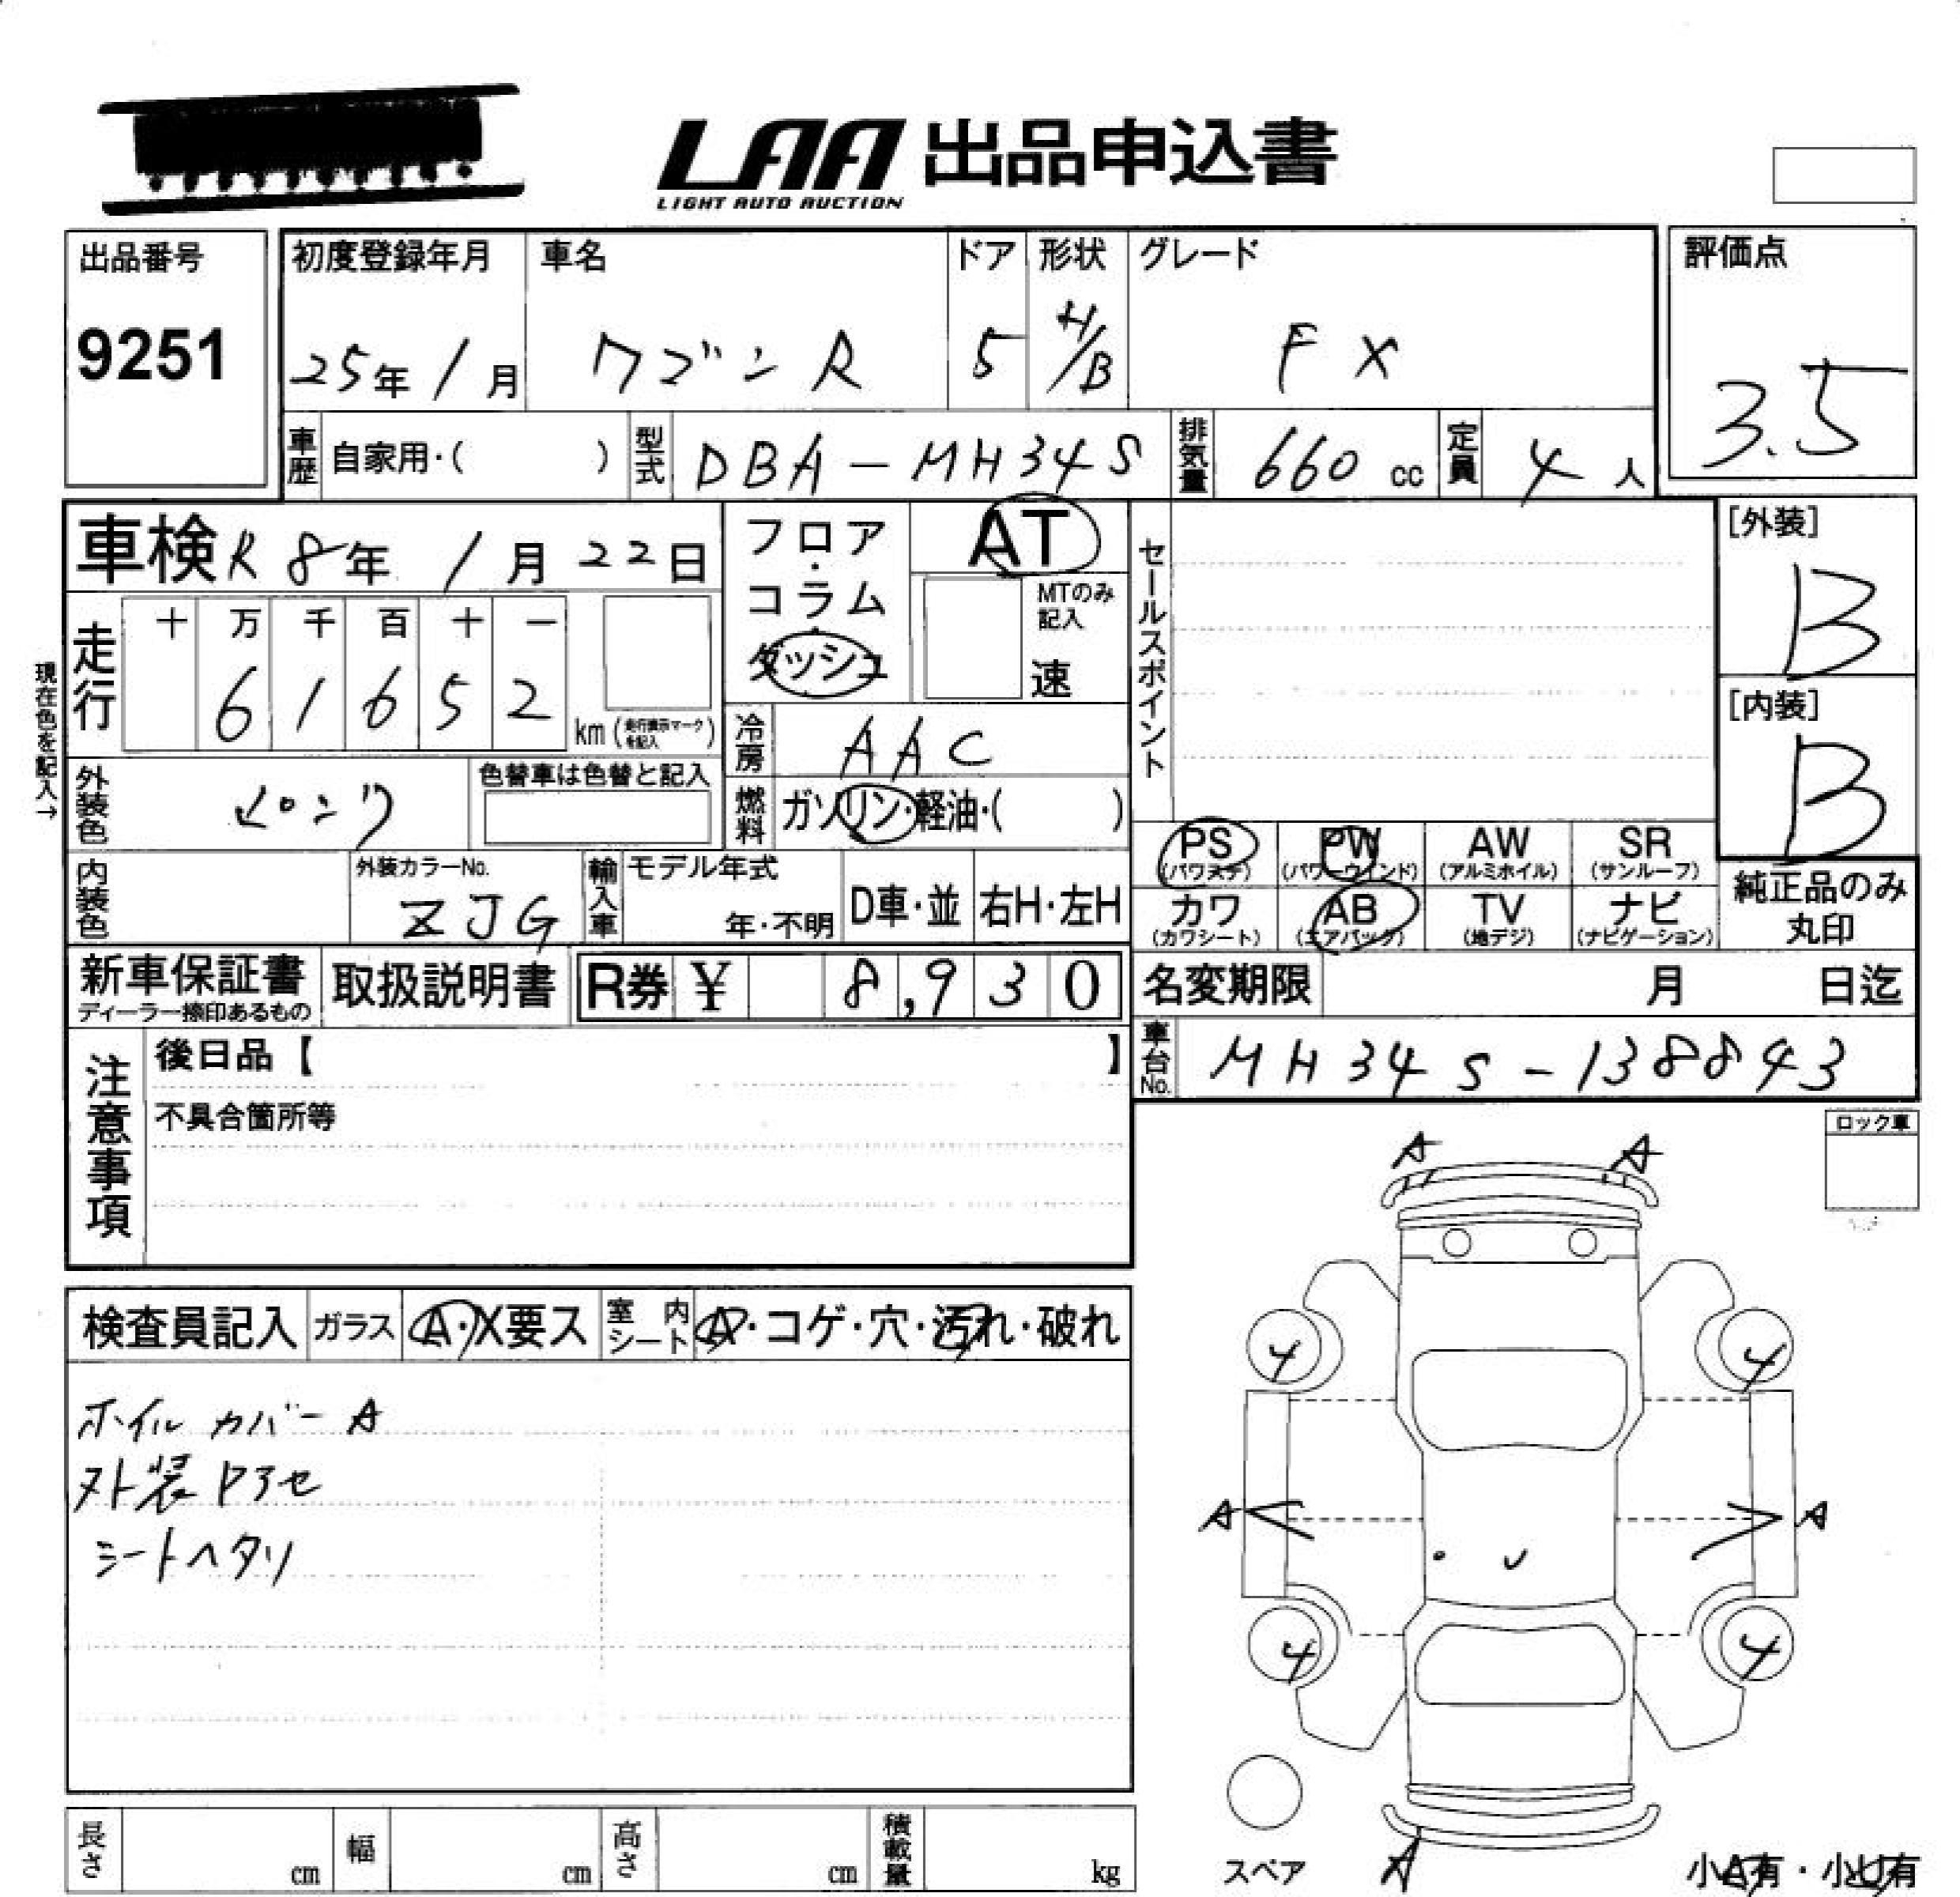 LAA 出品申込書
LIGHT AUTO AUCTION
出品番号
9251
初度登録年月
25年 1月
車名
ワゴンR
ドア
5
形状
H/B
グレード
FX
評価点
3.5
車歴 自家用・( )
型式 DBA-MH34S
排気量 660 cc
定員 4人
車検 R8年 1月 22日
フロア・コラム・ダッシュ
AT
MTのみ記入
速
セールスポイント
[外装]
B
[内装]
B
現在色を記入→
走行
十 万 千 百 十 一
6 1 6 5 2
km (走行表示マークを記入)
冷房 AAC
外装色
ピンク
色替車は色替と記入
燃料 ガソリン・軽油・( )
内装色
外装カラーNo.
ZJG
輸入車 モデル年式
年・不明
D車・並
右H・左H
PS (パワステ)
PW (パワーウインド)
AW (アルミホイル)
SR (サンルーフ)
カワ (カワシート)
AB (エアバック)
TV (地デジ)
ナビ (ナビゲーション)
純正品のみ
丸印
新車保証書
ディーラー捺印あるもの
取扱説明書
R券 ¥ 8,930
名変期限 月 日迄
車台No. MH34S-138843
注意事項
後日品【 】
不具合箇所等
ロック車
検査員記入
ガラス A・X要ス
室内シート A・コゲ・穴・汚れ・破れ
ホイルカバーA
外装ドアセ
シートヘタリ
A A
4 4
A A
4 4
A
スペア
小A有・小U有
長さ cm
幅 cm
高さ cm
積載量 kg